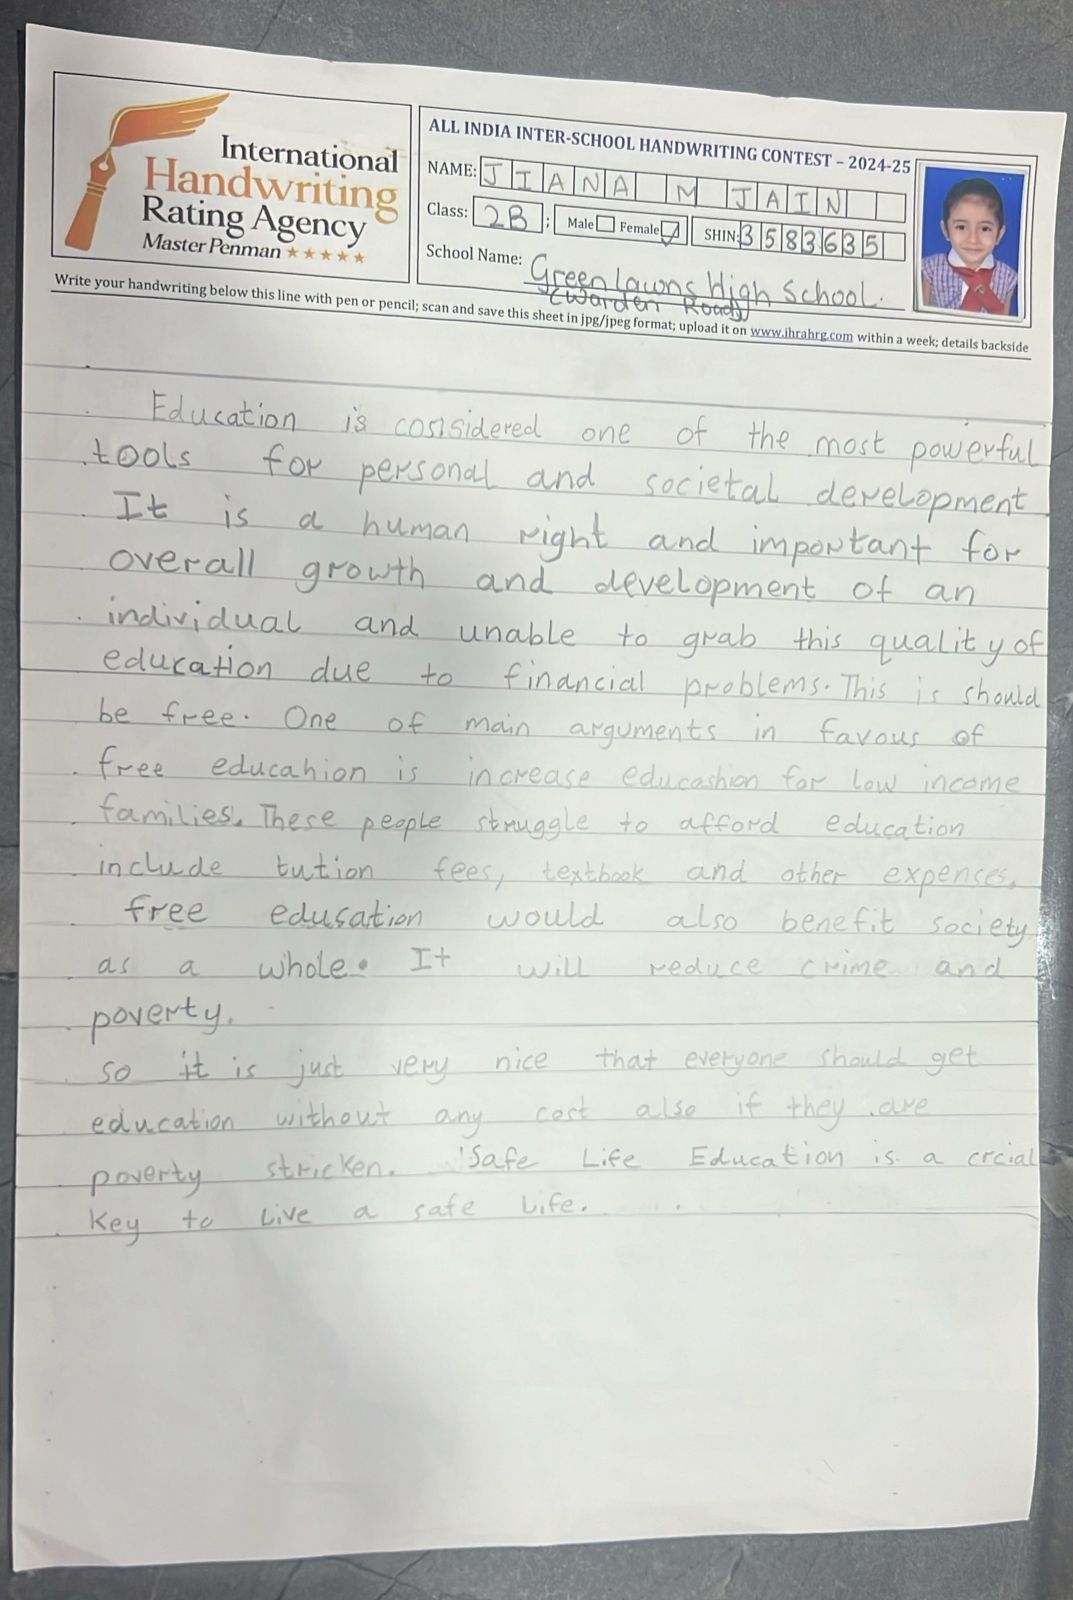 International
Handwriting
Rating Agency
Master Penman ★★★★★
ALL INDIA INTER-SCHOOL HANDWRITING CONTEST – 2024-25
NAME: JIANA M JAIN
Class: 2B ; Male Female SHIN: 3583635
School Name: Greenlawns High School.
(Warden Road)
Write your handwriting below this line with pen or pencil; scan and save this sheet in jpg/jpeg format; upload it on www.ihrahrg.com within a week; details backside
Education is cosisidered one of the most powerful
tools for personal and societal development
It is a human right and important for
overall growth and development of an
individual and unable to grab this quality of
education due to financial problems. This is should
be free. One of main arguments in favous of
free educahion is increase educashion for low income
families. These people struggle to afford education
include tution fees, textbook and other expenses.
free education would also benefit society
as a whole. It will reduce crime and
poverty.
so it is just very nice that everyone should get
education without any cost also if they are
poverty stricken. Safe Life Education is a crcial
key to Live a safe Life.